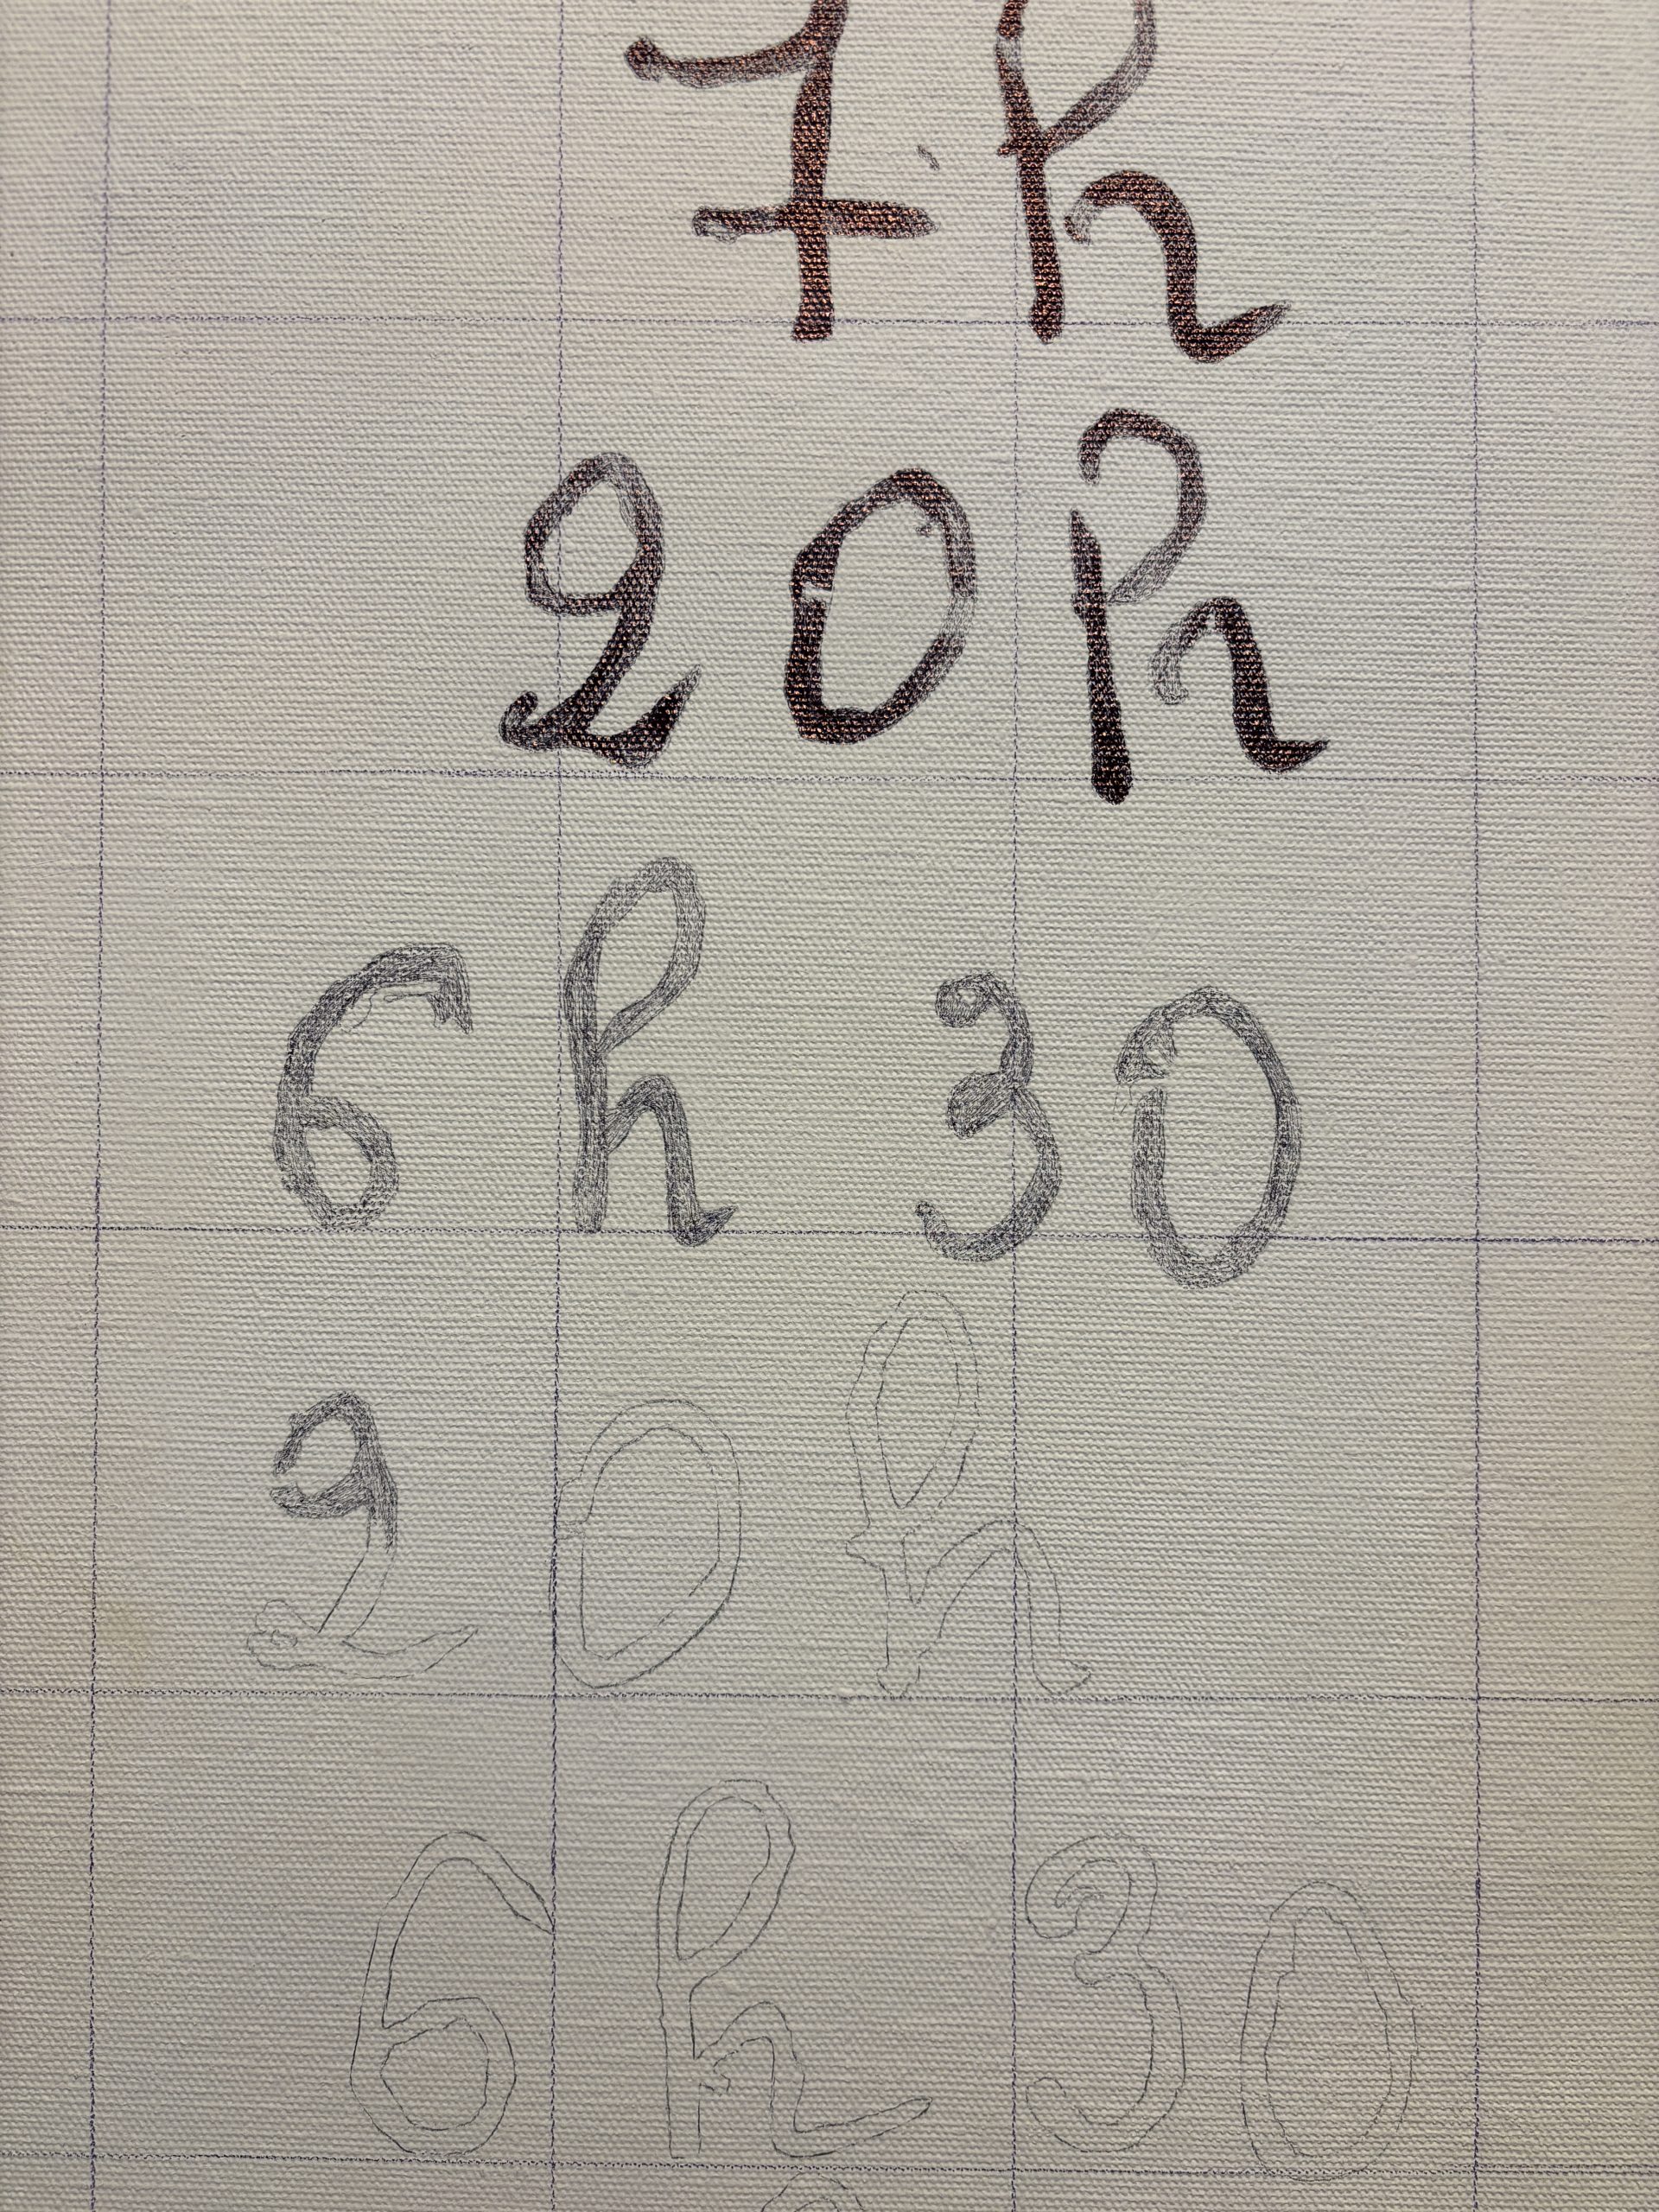 7 h
20 h
6 h 30
20 h
6 h 30